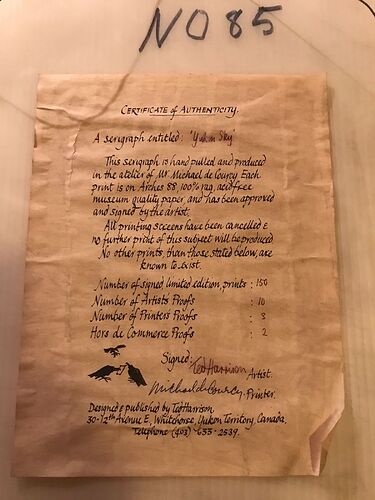 NO 85
CERTIFICATE of AUTHENTICITY.
A serigraph entitled: 'Yukon Sky'
This serigraph is hand pulled and produced
in the atelier of Mr Michael de Courcy. Each
print is on Arches 88, 100% rag, acid free
museum quality paper, and has been approved
and signed by the artist.
All printing screens have been cancelled &
no further print of this subject will be produced
No other prints, than those stated below, are
known to exist.
Number of signed limited edition, prints : 150
Number of Artists Proofs : 10
Number of Printers Proofs : 3
Hors de Commerce Proofs : 2
Signed: Ted Harrison Artist.
Michael de Courcy Printer.
Designed & published by Ted Harrison.
30-12th Avenue E, Whitehorse, Yukon Territory, Canada.
Telephone (403) - 633 - 2539.